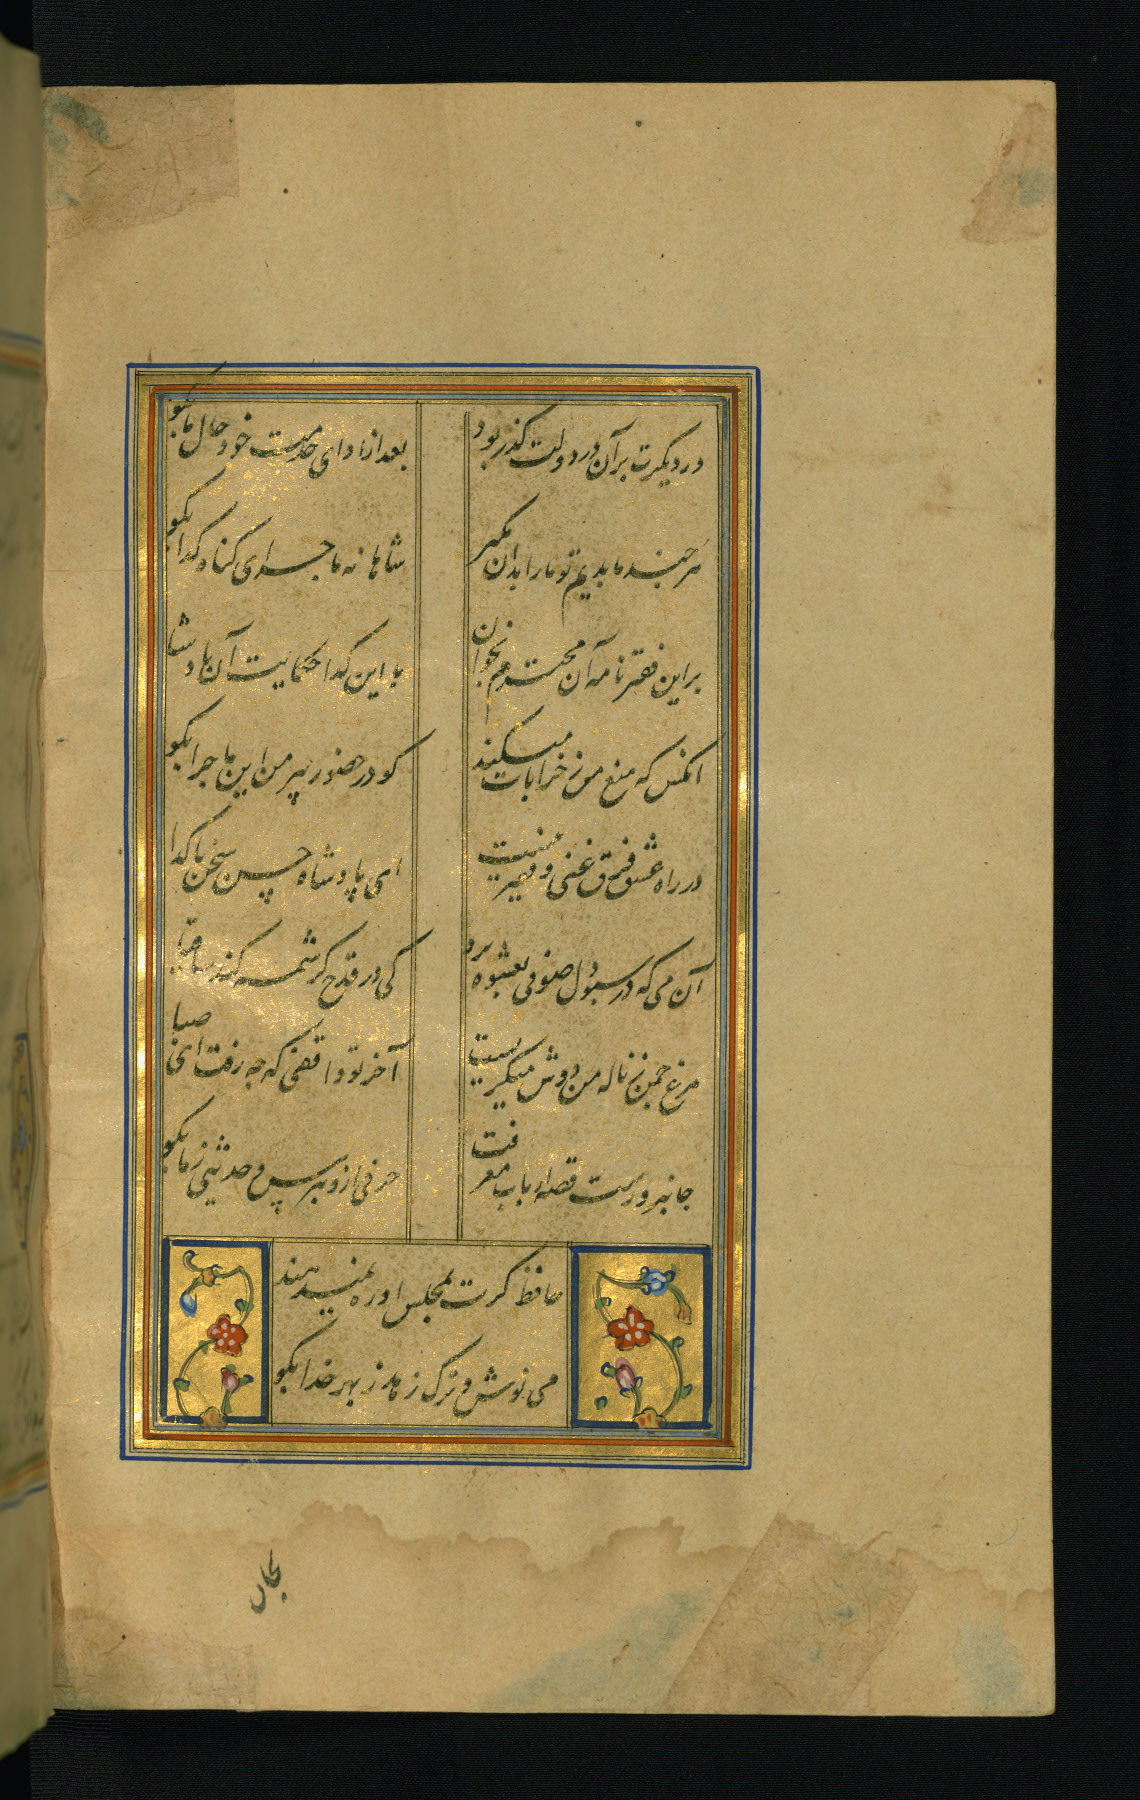 در دیکرت بر آن در دولت کذر بود
بعد از ادای خدمت خود حال ما بکو
هر چند ما بدیم تو ما را بدان مکیر
شاهانه ماجرای کناه کدا بکو
بر این فقیر نامه آن محتشم بخوان
با این کدا حکایت آن پادشا بکو
انکس که منع من ز خرابات میکند
کو در حضور پیر من این ماجرا بکو
در راه عشق فرق غنی و فقیر نیست
ای پادشاه حسن سخن با کدا
آن می که در سبو دل صوفی بعشوه برد
کی در قدح کرشمه کند ساقیا
مرغ چمن ز ناله من دوش میکریست
آخر تو واقفی که چه رفت ای صبا
جان پرورست قصه ارباب معرفت
حرفی ازو بپرس و حدیثی ز ما بکو
حافظ کرت بمجلس او ره نمیدهند
می نوش و ترک زهد ز بهر خدا بکو
بجان